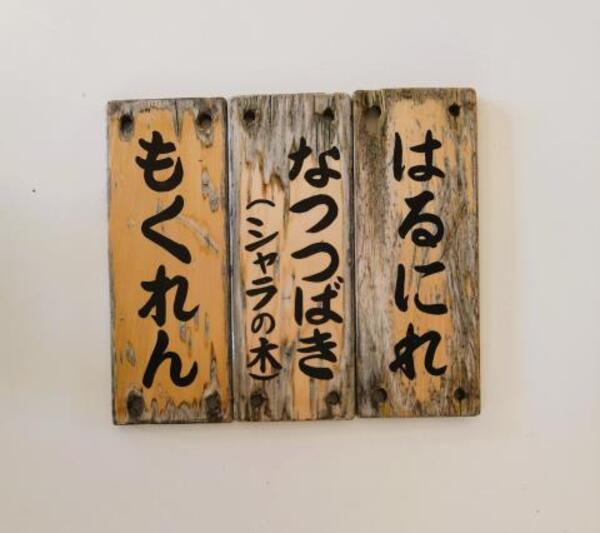 はるにれ
なつつばき
(シャラの木)
もくれん